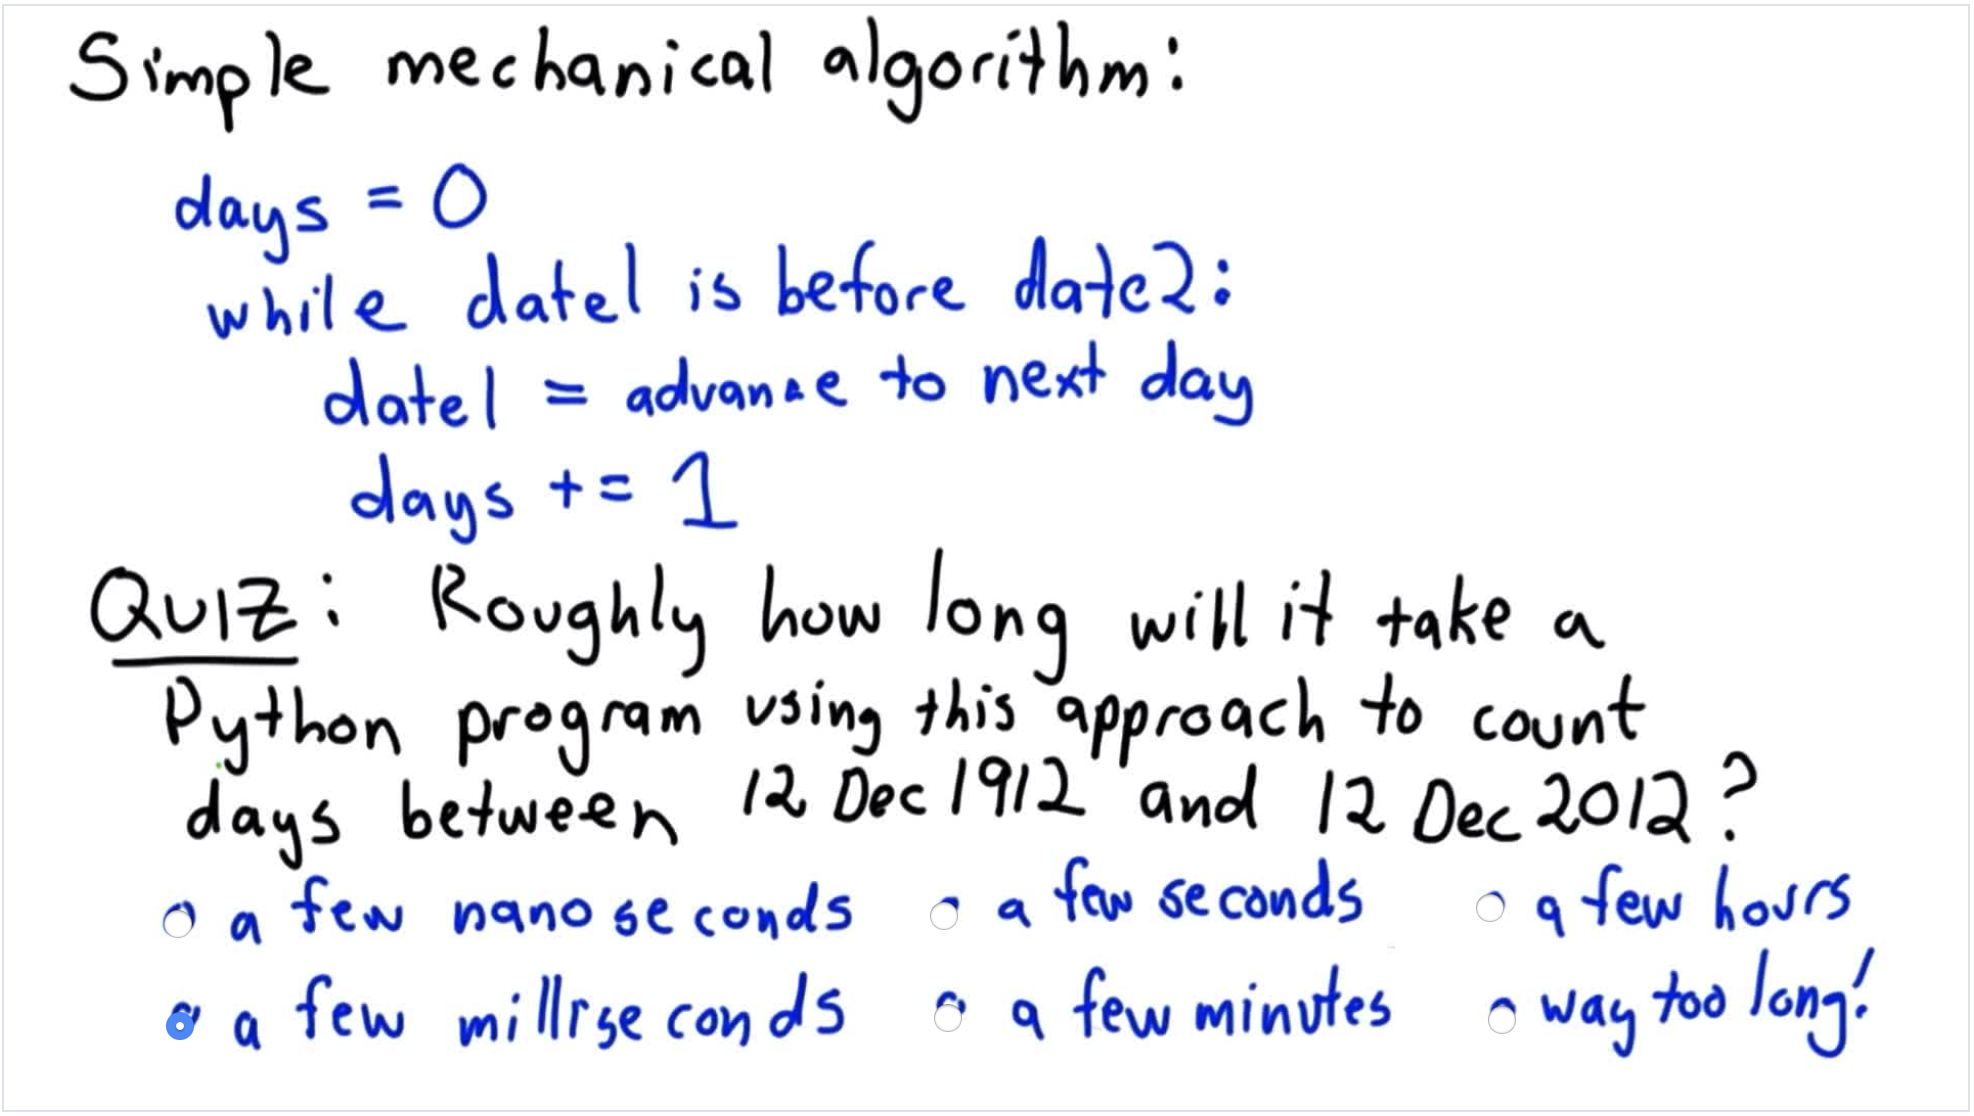 Simple mechanical algorithm:
days = 0
while date1 is before date2:
date1 = advance to next day
days += 1
QUIZ: Roughly how long will it take a
Python program using this approach to count
days between 12 Dec 1912 and 12 Dec 2012?
a few nanoseconds a few seconds a few hours
a few milliseconds a few minutes way too long!